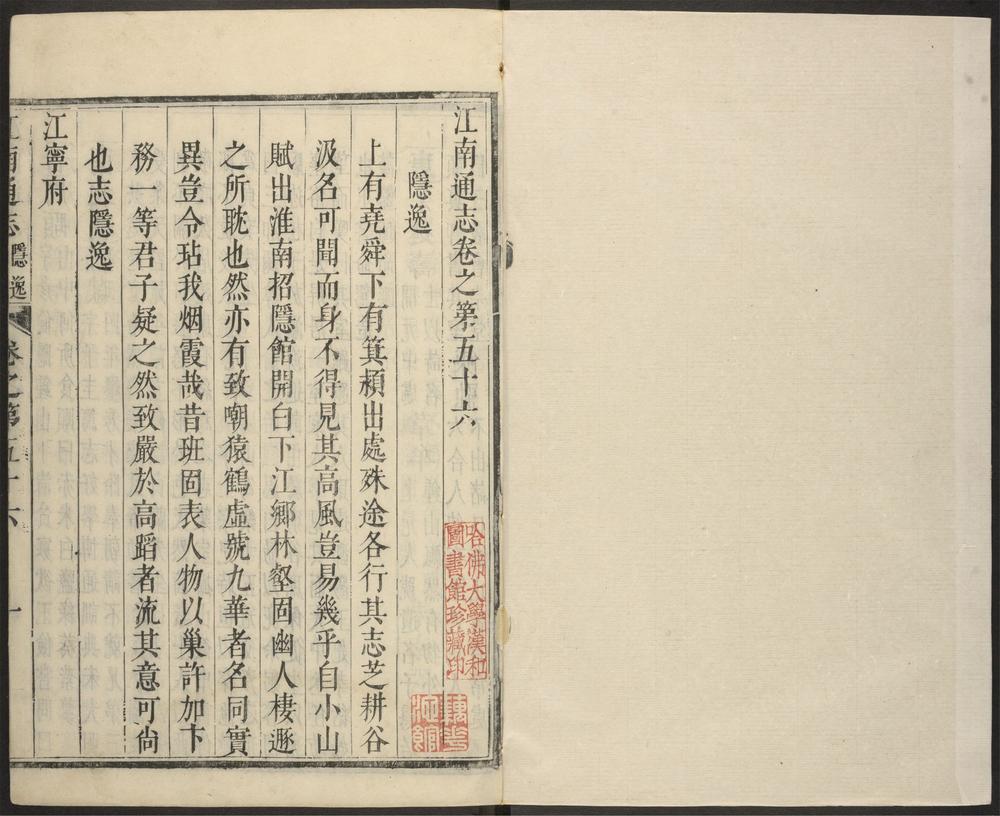 江南通志卷之第五十六
隱逸
上有堯舜下有箕潁出處殊途各行其志芝耕谷
汲名可聞而身不得見其高風豈易幾乎自小山
賦出淮南招隱館開白下江鄉林壑固幽人棲遯
之所耽也然亦有致嘲猿鶴虛號九華者名同實
異豈令玷我烟霞哉昔班固表人物以巢許加卞
務一等君子疑之然致嚴於高蹈者流其意可尙
也志隱逸
江寧府
江南通志 隱逸 卷之第五十六 一
哈佛大學漢和
圖書館珍藏印